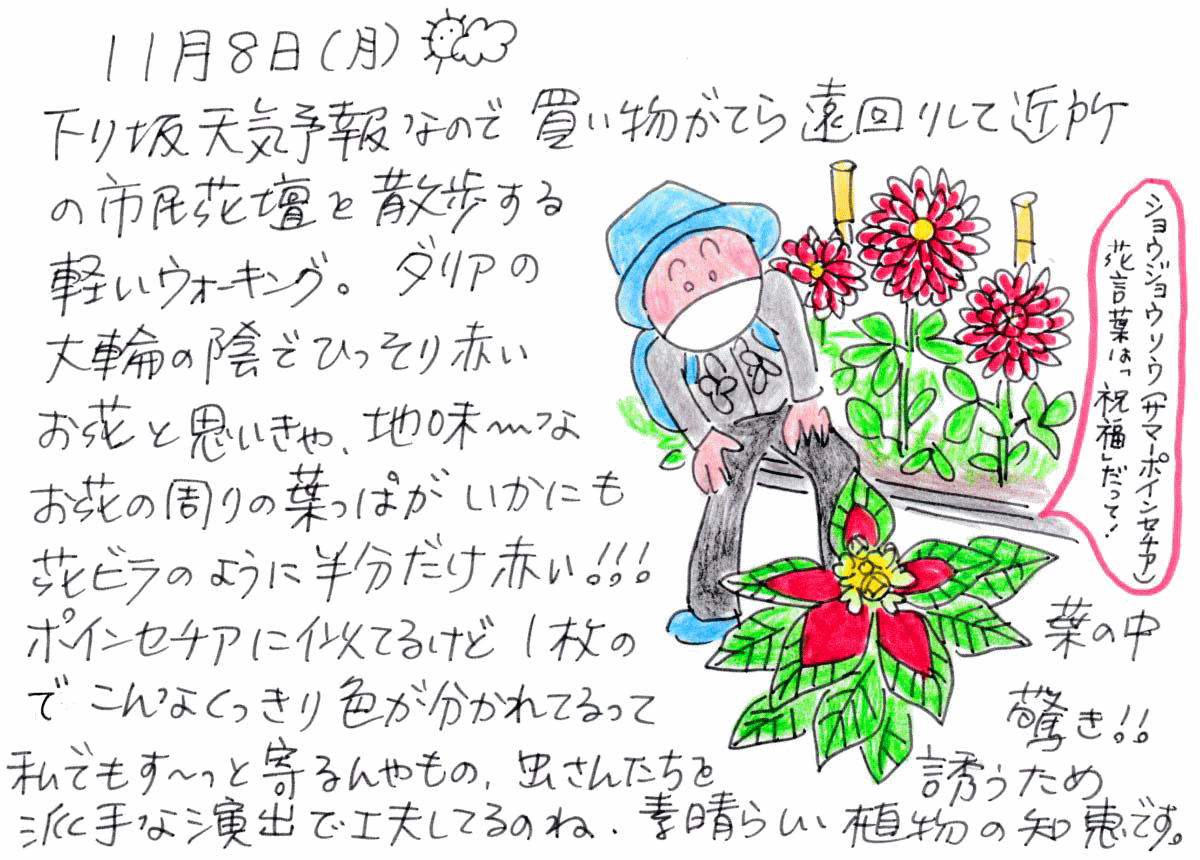 11月8日(月)
下り坂天気予報なので買い物がてら遠回りして近所
の市民花壇を散歩する
軽いウォーキング。ダリアの
大輪の陰でひっそり赤い
お花と思いきや、地味〜な
お花の周りの葉っぱがいかにも
花ビラのように半分だけ赤い!!!
ポインセチアに似てるけど1枚の葉の中
でこんなくっきり色が分かれてるって驚き!!
私でもす〜っと寄るんやもの、虫さんたちを誘うため
派手な演出で工夫してるのね、素晴らしい植物の知恵です。
ショウジョウソウ(サマーポインセチア)
花言葉はっ「祝福」だって!